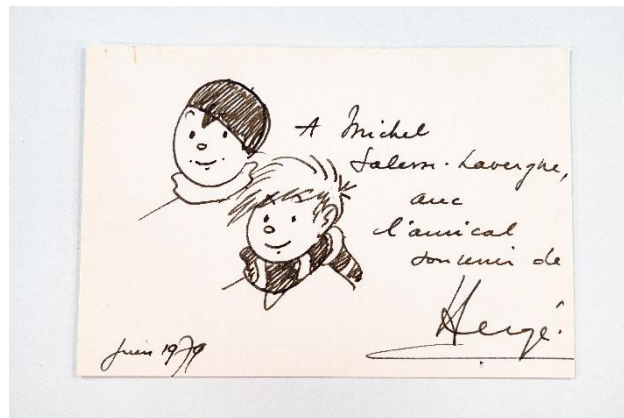 A Michel
Lavergne,
avec
l'amical
souvenir de
Hergé.
juin 1979